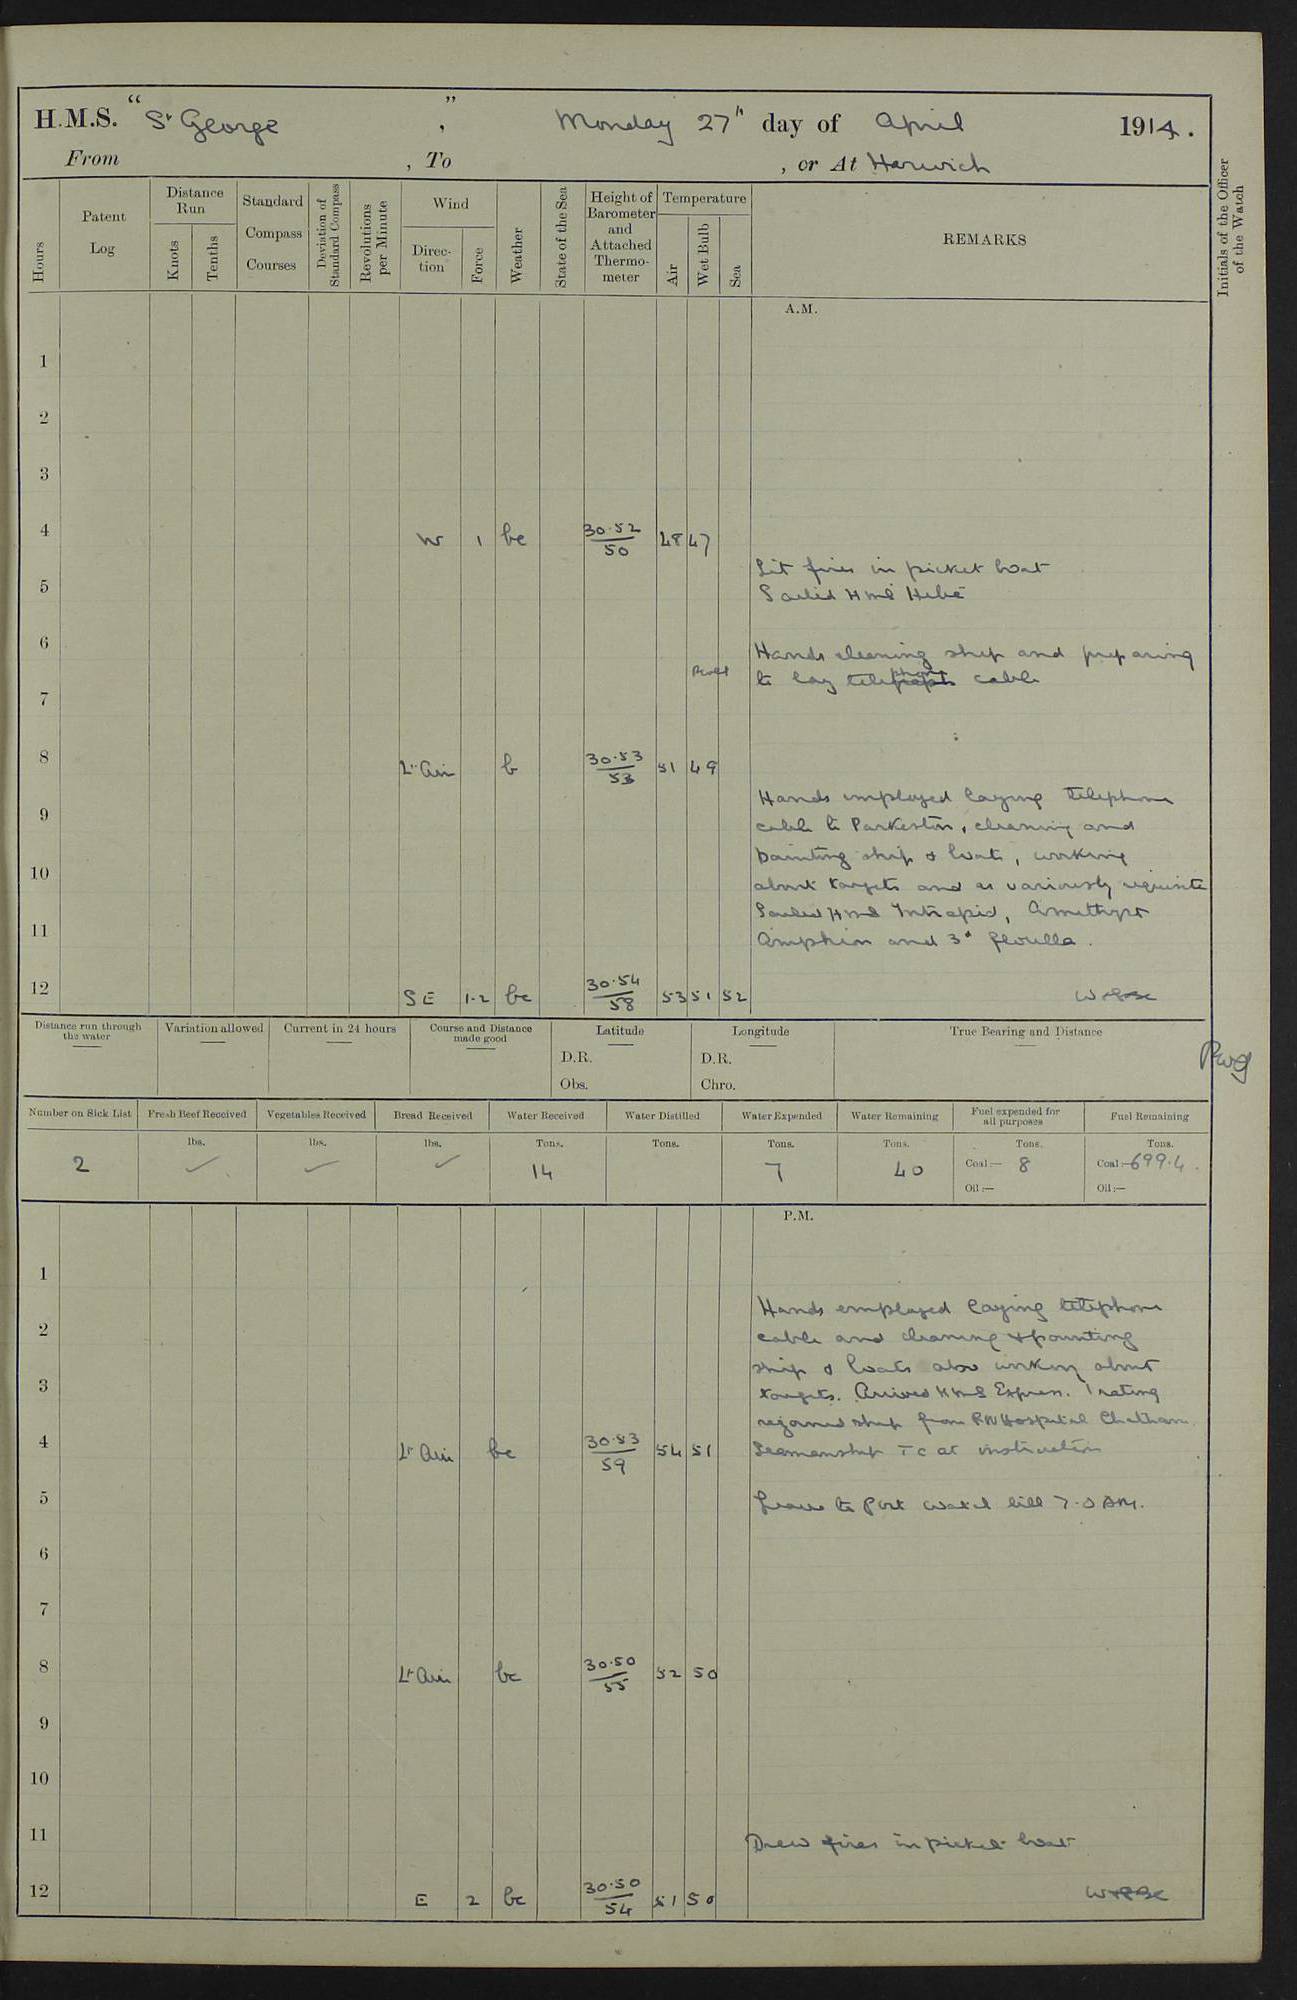 H.M.S. "St George", Monday 27th day of April 1914.
From , To , or At Harwich
Hours
Patent Log
Distance Run
Knots
Tenths
Standard Compass Courses
Deviation of Standard Compass
Revolutions per Minute
Wind
Direction
Force
Weather
State of the Sea
Height of Barometer and Attached Thermometer
Temperature
Air
Wet Bulb
Sea
REMARKS
Initials of the Officer of the Watch
A.M.
1
2
3
4 W 1 bc 30.52 50 48 47
Lit fires in picket boat
5 Sailed HMS Hebe
6 Hands cleaning ship and preparing
to lay telephone cable
7
8 Lt Air b 30.53 53 51 49
Hands employed laying telephone
9 cable to Parkeston, cleaning and
painting ship & boats, working
10 about targets and as variously requisite
Sailed HMS Intrepid, Amethyst
11 Amphion and 3d flotilla.
12 SE 1-2 bc 30.54 58 53 51 52
Distance run through the water
Variation allowed
Current in 24 hours
Course and Distance made good
Latitude
D.R.
Obs.
Longitude
D.R.
Chro.
True Bearing and Distance
Number on Sick List
Fresh Beef Received
Vegetables Received
Bread Received
Water Received
Water Distilled
Water Expended
Water Remaining
Fuel expended for all purposes
Fuel Remaining
lbs. lbs. lbs. Tons. Tons. Tons. Tons. Tons. Tons.
2 ✓ ✓ ✓ 14 7 40 Coal:— 8 Coal:—699.4.
Oil:— Oil:—
P.M.
1
Hands employed laying telephone
2 cable and cleaning & painting
ship & boats also working about
3 targets. Arrived HMS Express. 1 rating
rejoined ship from RN Hospital Chatham.
4 Lt Air bc 30.53 59 54 51 Seamanship TC at instruction
5 Leave to Port watch till 7.0 AM.
6
7
8 Lt Air bc 30.50 55 52 50
9
10
11 Drew fires in picket boat
12 E 2 bc 30.50 54 51 50